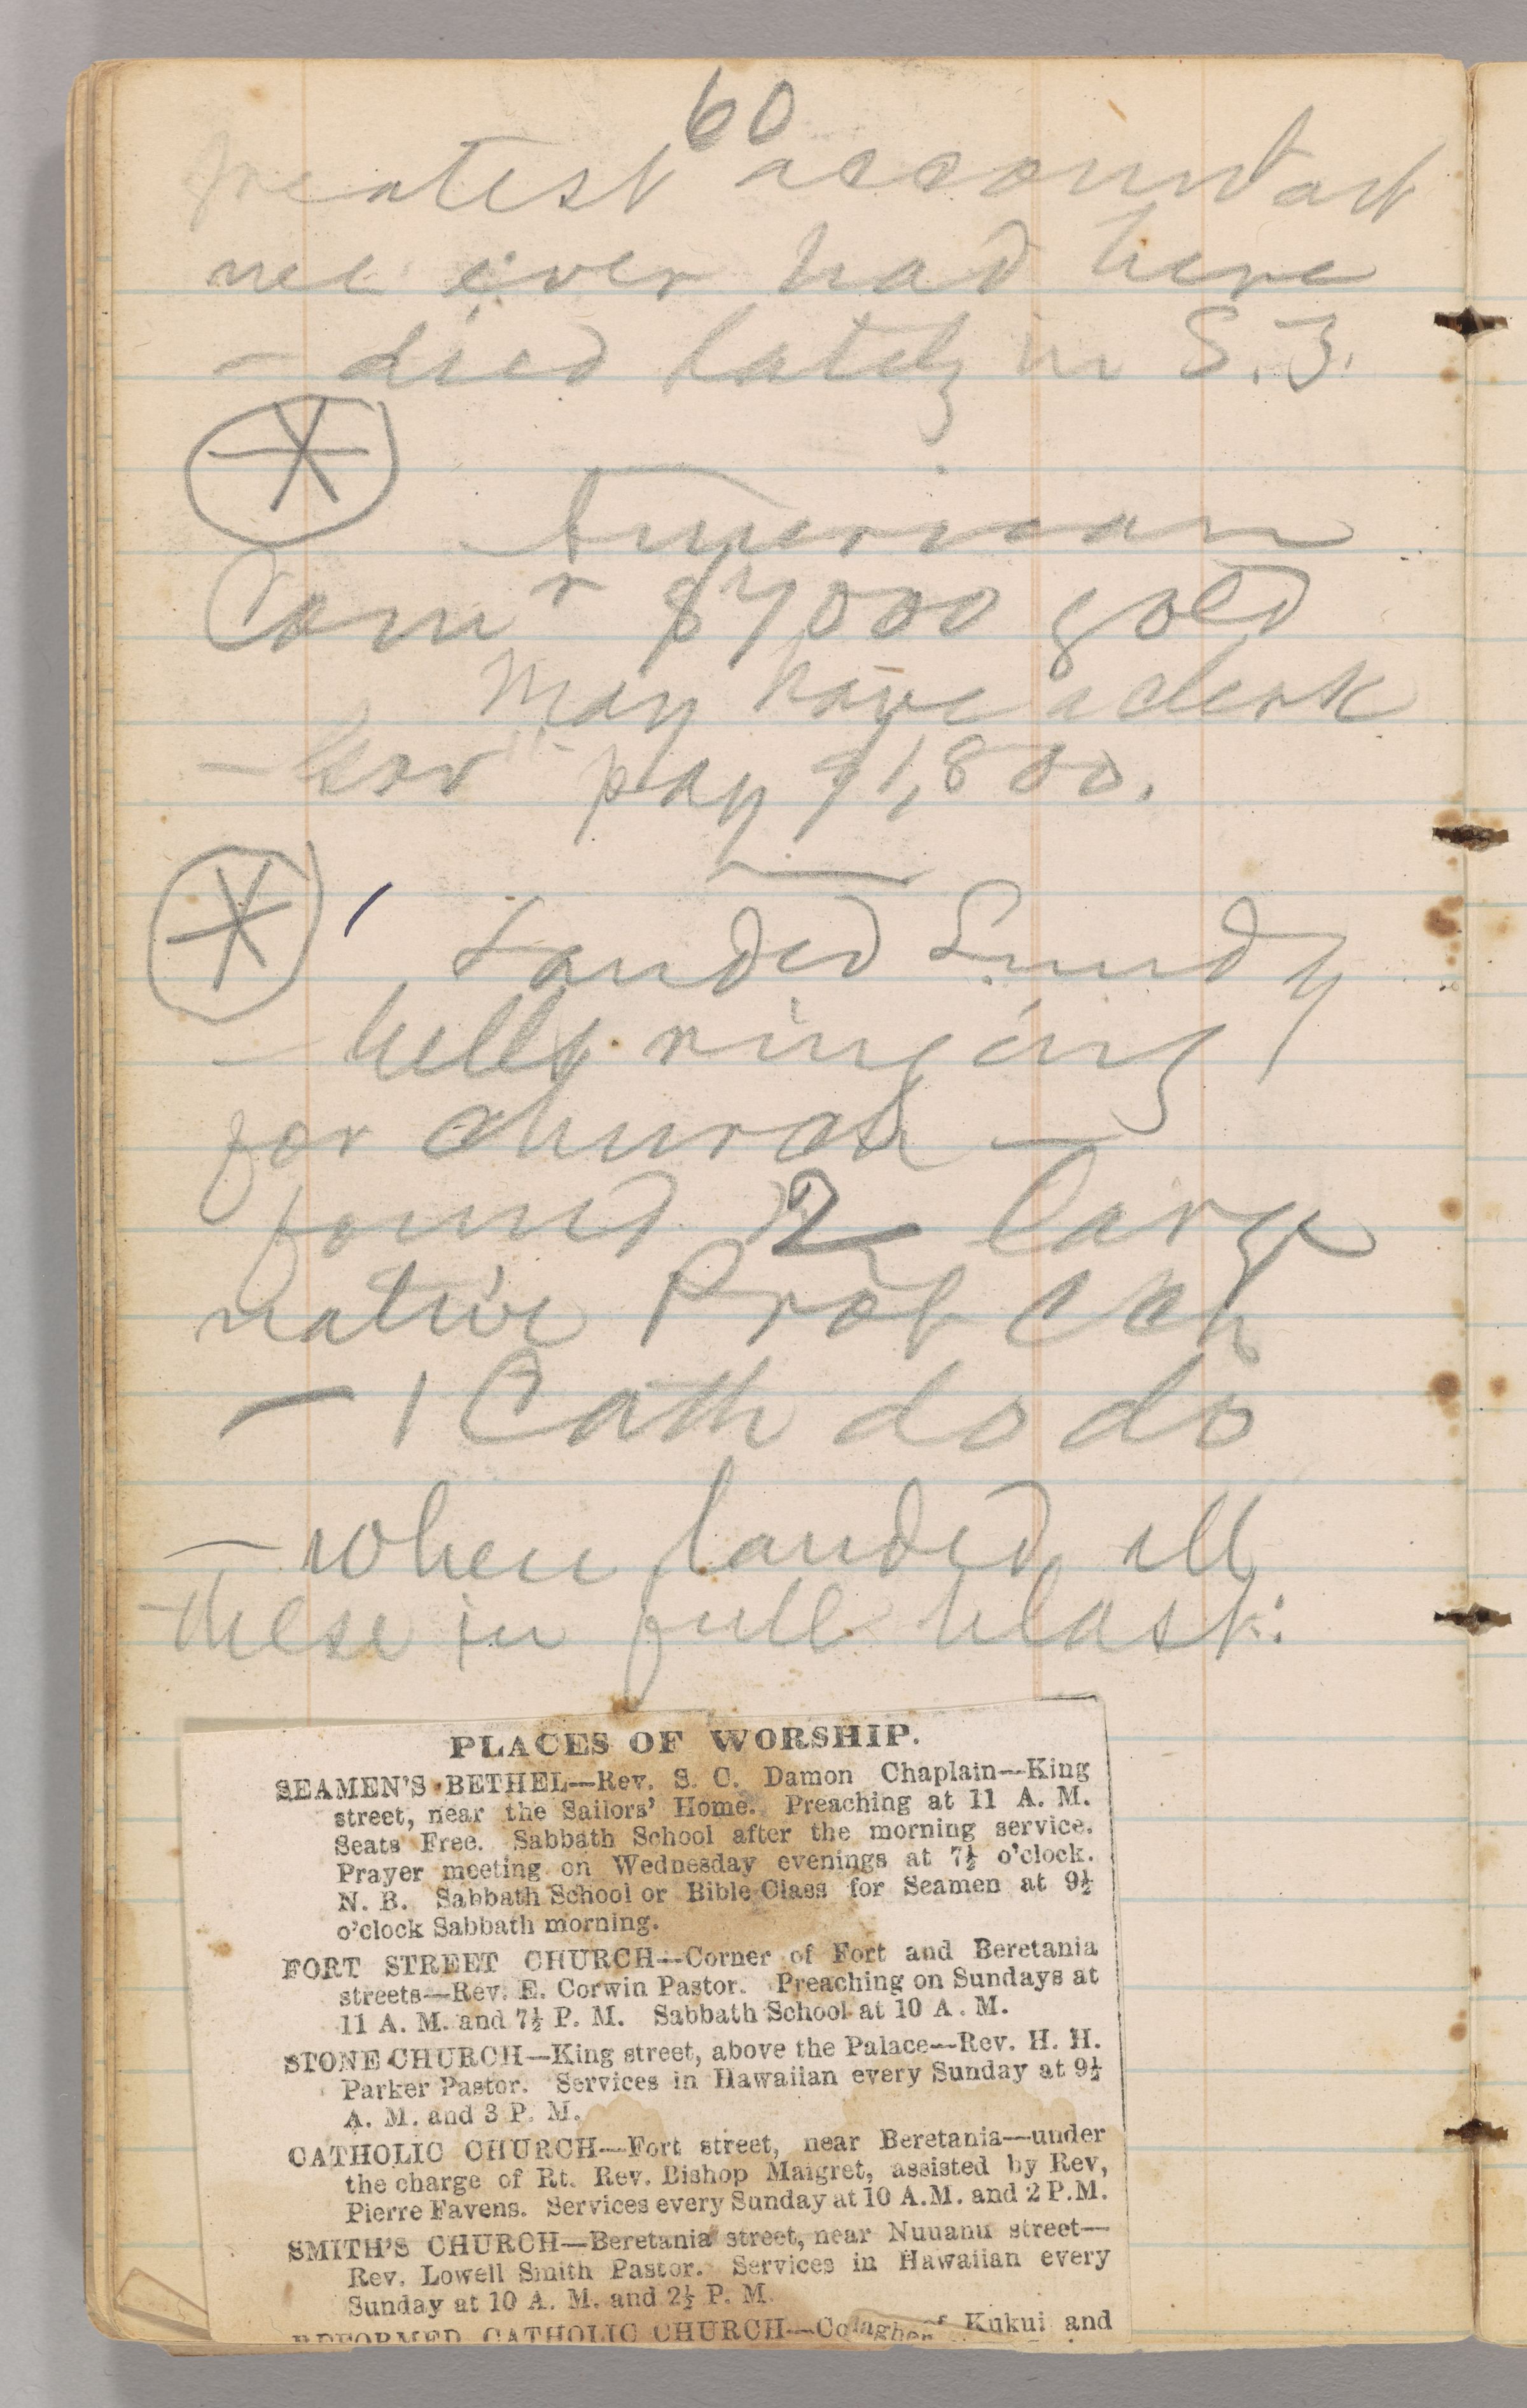 60
greatest accountant
we ever had here
— died lately in S. F.
American
Comr $7000 gold
May have a clerk
— Gov pay $1,800.
Landed Sundy
— bells ringing
for church —
found 2 large
native Prot Ch
— 1 Cath do do
— when landed all
these in full blast:
PLACES OF WORSHIP.
SEAMEN'S BETHEL—Rev. S. C. Damon Chaplain—King
street, near the Sailors' Home. Preaching at 11 A. M.
Seats Free. Sabbath School after the morning service.
Prayer meeting on Wednesday evenings at 7½ o'clock.
N. B. Sabbath School or Bible Class for Seamen at 9½
o'clock Sabbath morning.
FORT STREET CHURCH—Corner of Fort and Beretania
streets—Rev. E. Corwin Pastor. Preaching on Sundays at
11 A. M. and 7½ P. M. Sabbath School at 10 A. M.
STONE CHURCH—King street, above the Palace—Rev. H. H.
Parker Pastor. Services in Hawaiian every Sunday at 9½
A. M. and 3 P. M.
CATHOLIC CHURCH—Fort street, near Beretania—under
the charge of Rt. Rev. Bishop Maigret, assisted by Rev,
Pierre Favens. Services every Sunday at 10 A.M. and 2 P.M.
SMITH'S CHURCH—Beretania street, near Nuuanu street—
Rev. Lowell Smith Pastor. Services in Hawaiian every
Sunday at 10 A. M. and 2½ P. M.
REFORMED CATHOLIC CHURCH— Kukui and